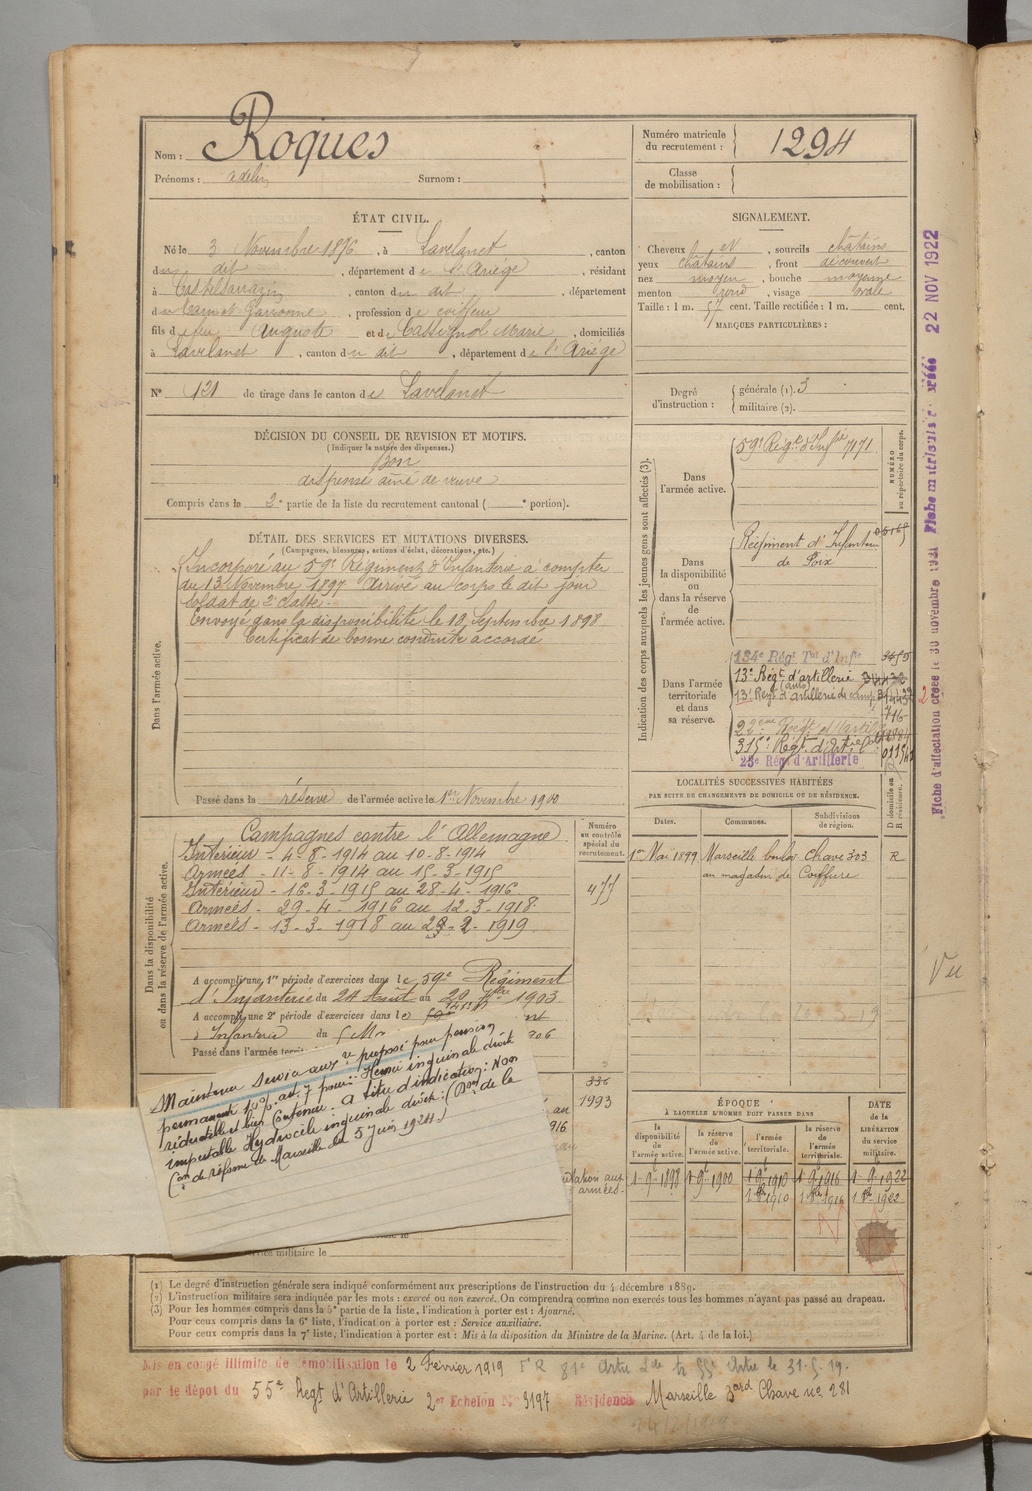 Nom : Roques
Prénoms : Adelin Surnom :
Numéro matricule du recrutement : 1294
Classe de mobilisation :
ÉTAT CIVIL.
Né le 3 Novembre 1876, à Lavelanet, canton
du dit, département de l'Ariège, résidant
à Castelsarrazin, canton du dit, département
du Tarn et Garonne, profession de coiffeur
fils de feu Auguste et de Cassignol Marie, domiciliés
à Lavelanet, canton du dit, département de l'Ariège
N° 121 de tirage dans le canton de Lavelanet
SIGNALEMENT.
Cheveux et, sourcils châtains
yeux châtains, front découvert
nez moyen, bouche moyenne
menton rond, visage ovale
Taille : 1 m. 57 cent. Taille rectifiée : 1 m. cent.
MARQUES PARTICULIÈRES :
Degré d'instruction : générale (1). 3
militaire (2).
DÉCISION DU CONSEIL DE REVISION ET MOTIFS.
(Indiquer la nature des dispenses.)
Bon
dispensé aîné de veuve
Compris dans la 2e partie de la liste du recrutement cantonal ( e portion).
DÉTAIL DES SERVICES ET MUTATIONS DIVERSES.
(Campagnes, blessures, actions d'éclat, décorations, etc.)
Dans l'armée active.
Incorporé au 59e Régiment d'Infanterie à compter
du 13 Novembre 1897 Arrivé au corps le dit jour
Soldat de 2e classe
Envoyé dans la disponibilité le 18 Septembre 1898
Certificat de bonne conduite accordé
Passé dans la réserve de l'armée active le 1er Novembre 1900
Indication des corps auxquels les jeunes gens sont affectés (3).
NUMÉRO au répertoire du corps.
Dans l'armée active.
59e Régt d'Infrie 7171
Dans la disponibilité ou dans la réserve de l'armée active.
Régiment d'Infanterie
de Foix
Dans l'armée territoriale et dans sa réserve.
134e Régt Tal d'Infie
13e Régt d'artillerie
13e Regt d'artillerie de camp
716
22ème Régt d'Artil
315e Régt d'Art
23e Rég. d'Artillerie
LOCALITÉS SUCCESSIVES HABITÉES
PAR SUITE DE CHANGEMENTS DE DOMICILE OU DE RÉSIDENCE.
Dates. Communes. Subdivisions de région. D domicile ou R résidence.
1er Mai 1899 Marseille boul Chave 303 R
au magasin de Coiffure
Dans la disponibilité ou dans la réserve de l'armée active.
Numéro au contrôle spécial du recrutement.
Campagnes contre l'Allemagne
Intérieur - 4-8-1914 au 10-8-1914
Armées - 11-8-1914 au 15-3-1915
Intérieur - 16-3-1915 au 28-4-1916
Armées - 29-4-1916 au 12-3-1918
Armées - 13-3-1918 au 2-2-1919
A accompli une 1re période d'exercices dans le 59e Régiment
d'Infanterie du 24 Août au 20 7bre 1903
A accompli une 2e période d'exercices dans le
d'Infanterie du 906
Passé dans l'armée territ
Maintenu service aux re proposé pour pension
permanente 10 % art. 7 pour : Hernie inguinale droite
réductible et bien contenue. A titre d'indication : Non
imputable Hydrocèle inguinale droite : (Don de la
Con de réforme de Marseille du 5 Juin 1924.)
336
1993
armées.
service militaire le
ÉPOQUE
À LAQUELLE L'HOMME DOIT PASSER DANS
la disponibilité de l'armée active. la réserve de l'armée active. l'armée territoriale. la réserve de l'armée territoriale.
DATE de la LIBÉRATION du service militaire.
1-9-1898 1-9-1900 1-9-1910 1-9-1916 1-9-1922
1910 1916 1922
(1) Le degré d'instruction générale sera indiqué conformément aux prescriptions de l'instruction du 4 décembre 1889.
(2) L'instruction militaire sera indiquée par les mots : exercé ou non exercé. On comprendra comme non exercés tous les hommes n'ayant pas passé au drapeau.
(3) Pour les hommes compris dans la 5e partie de la liste, l'indication à porter est : Ajourné.
Pour ceux compris dans la 6e liste, l'indication à porter est : Service auxiliaire.
Pour ceux compris dans la 7e liste, l'indication à porter est : Mis à la disposition du Ministre de la Marine. (Art. 4 de la loi.)
Mis en congé illimité de démobilisation le 2 Février 1919 81e Artie 55e Artie le 31-5-19.
par le dépot du 55e Regt d'Artillerie 2er Echelon N° 3197 Résidence Marseille Bard Chave no 281
Fiche d'affectation créée le 30 novembre 1921 Fiche matricule créée 22 NOV 1922
Vu